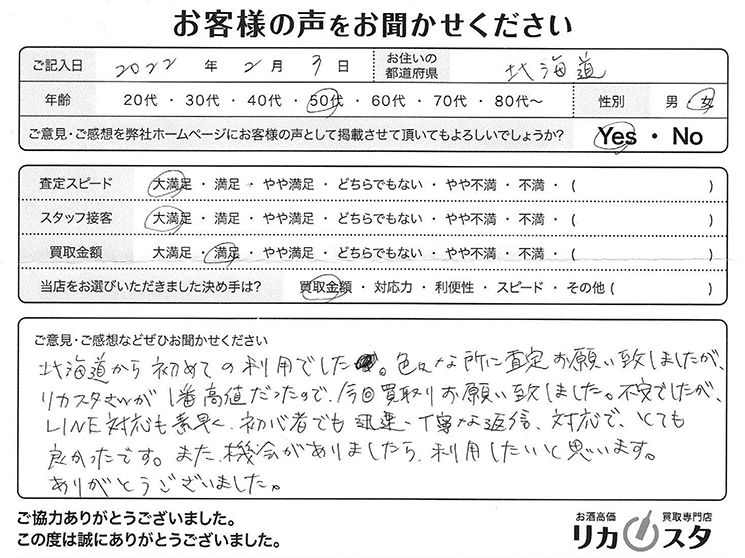 お客様の声をお聞かせください
ご記入日 2022 年 2 月 3 日 お住いの都道府県 北海道
年齢 20代 ・ 30代 ・ 40代 ・ 50代 ・ 60代 ・ 70代 ・ 80代〜 性別 男 女
ご意見・ご感想を弊社ホームページにお客様の声として掲載させて頂いてもよろしいでしょうか? Yes ・ No
査定スピード 大満足 ・ 満足 ・ やや満足 ・ どちらでもない ・ やや不満 ・ 不満 ・ ( )
スタッフ接客 大満足 ・ 満足 ・ やや満足 ・ どちらでもない ・ やや不満 ・ 不満 ・ ( )
買取金額 大満足 ・ 満足 ・ やや満足 ・ どちらでもない ・ やや不満 ・ 不満 ・ ( )
当店をお選びいただきました決め手は? 買取金額 ・ 対応力 ・ 利便性 ・ スピード ・ その他 ( )
ご意見・ご感想などぜひお聞かせください
北海道から初めての利用でした。色々な所に査定お願い致しましたが、
リカスタさんが1番高値だったので、今回買取りお願い致しました。不安でしたが、
LINE対応も素早く、初心者でも迅速・丁寧な返信、対応で、とても
良かったです。また、機会がありましたら、利用したいと思います。
ありがとうございました。
ご協力ありがとうございました。
この度は誠にありがとうございました。
お酒高価 買取専門店
リカスタ